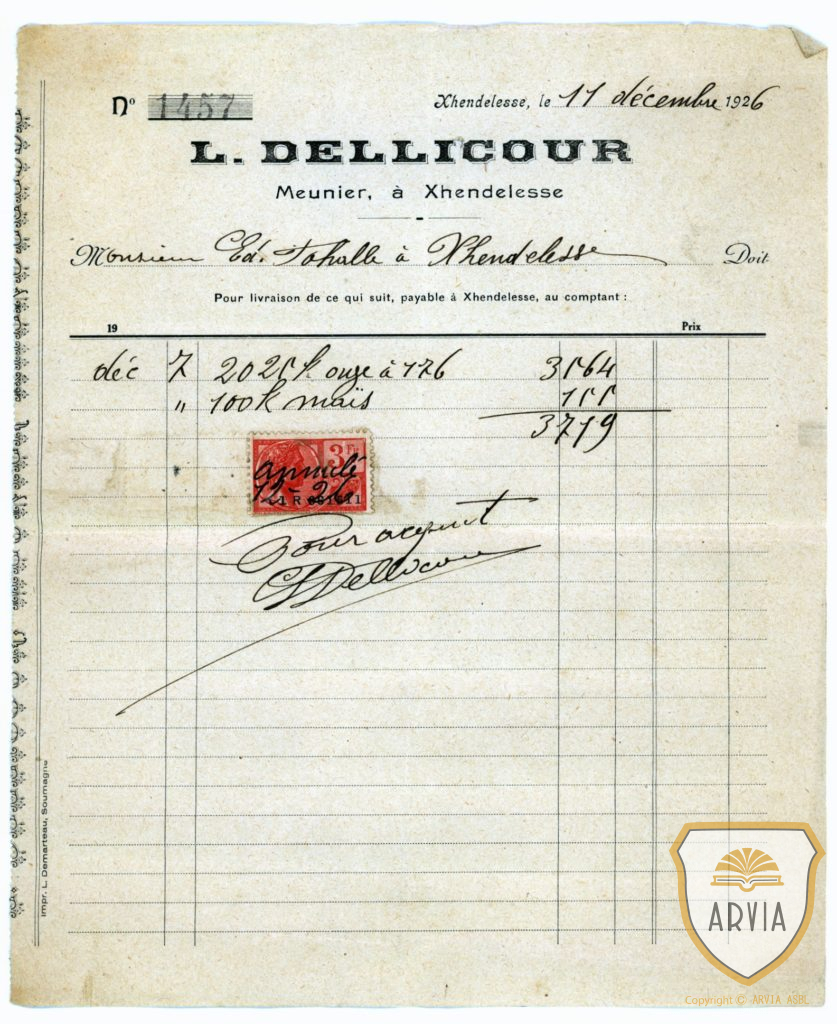 No 1457
Xhendelesse, le 11 décembre 1926
L. DELLICOUR
Meunier, à Xhendelesse
Monsieur Ed. à Xhendelesse Doit
Pour livraison de ce qui suit, payable à Xhendelesse, au comptant :
19 Prix
déc 7 2025 k à 176 3564
" 100 k maïs 155
3719
3 Fr
annulé
12-26
Pour acquit
LDellicour
Impr. L. Demarteau, Soumagne
ARVIA
Copyright © ARVIA ASBL